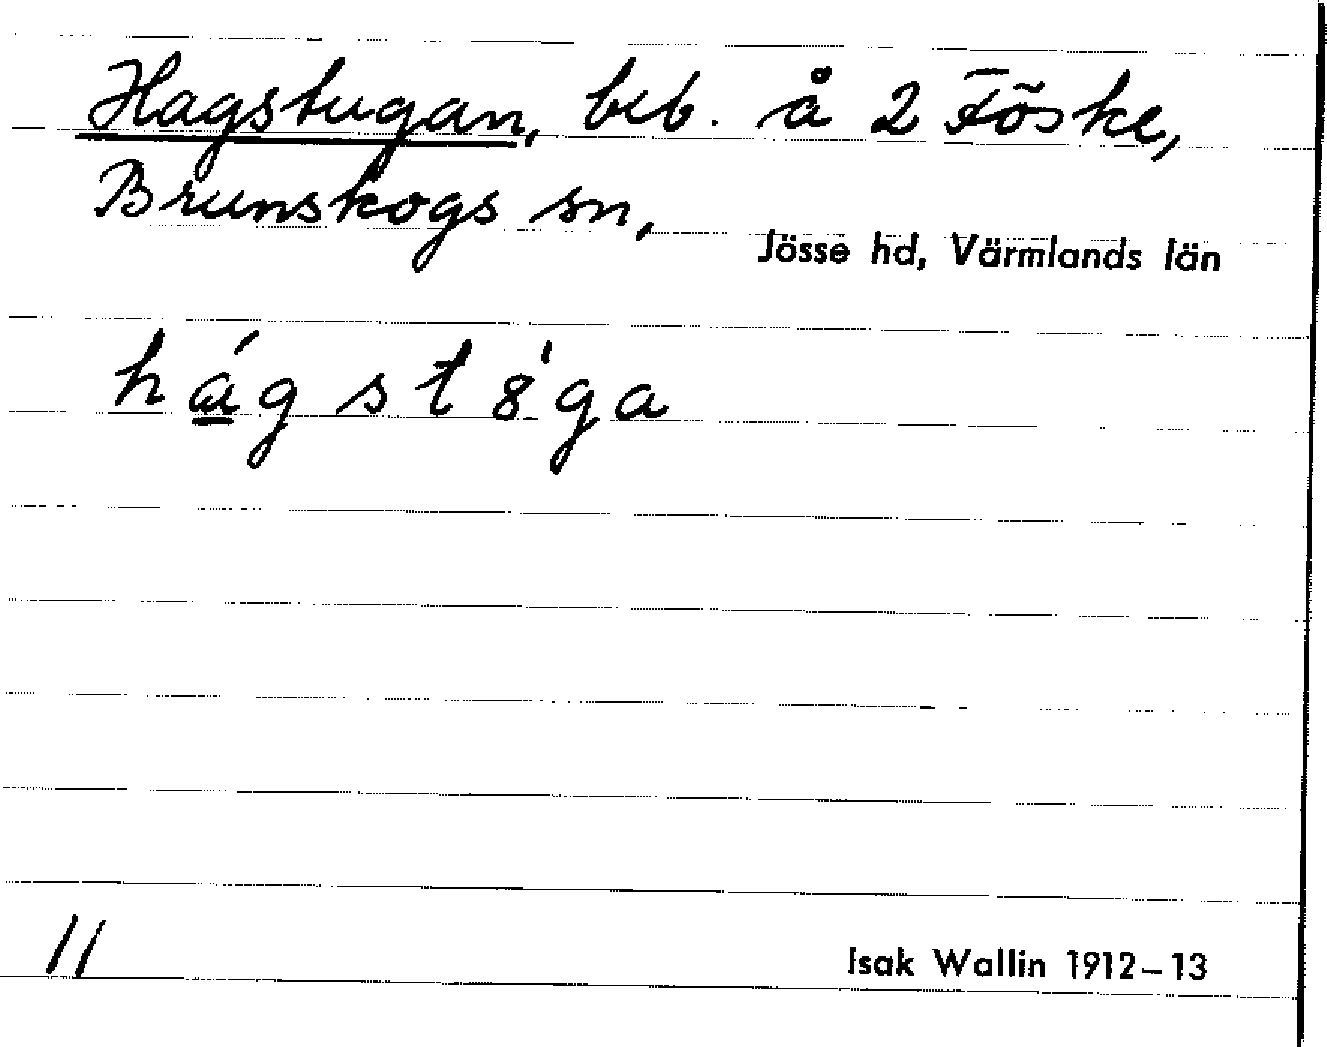 Hagstugan, beb. å 2 Föske,
Brunskogs sn,
Jösse hd, Värmlands län
hágst8̍ga
11
Isak Wallin 1912–13